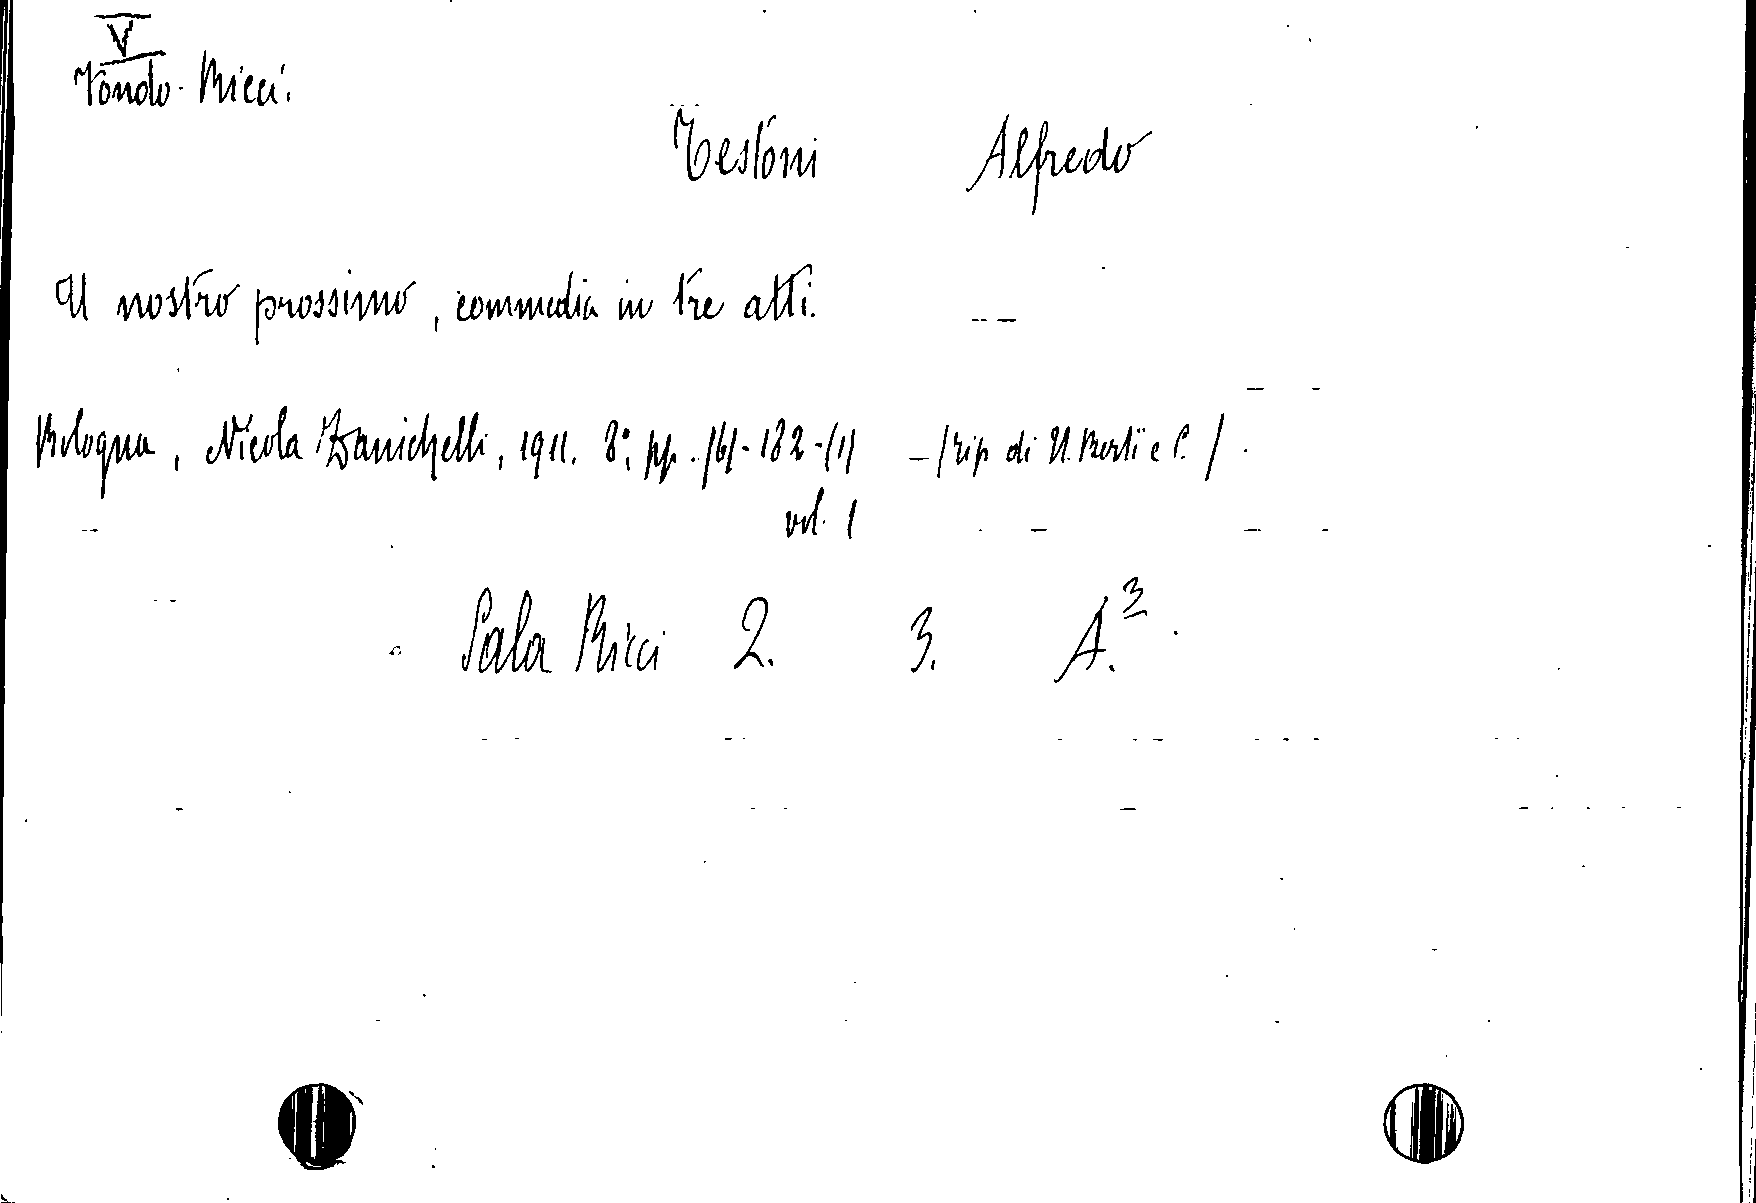 V
Fondo Ricci.
Testoni Alfredo
Il nostro prossimo, commedia in tre atti.
Bologna, Nicola Zanichelli, 1911. 8°, pp. /6/-182-/1/ - /tip. di U. Berti e C./.
vol. 1
Sala Ricci 2. 3. A.³